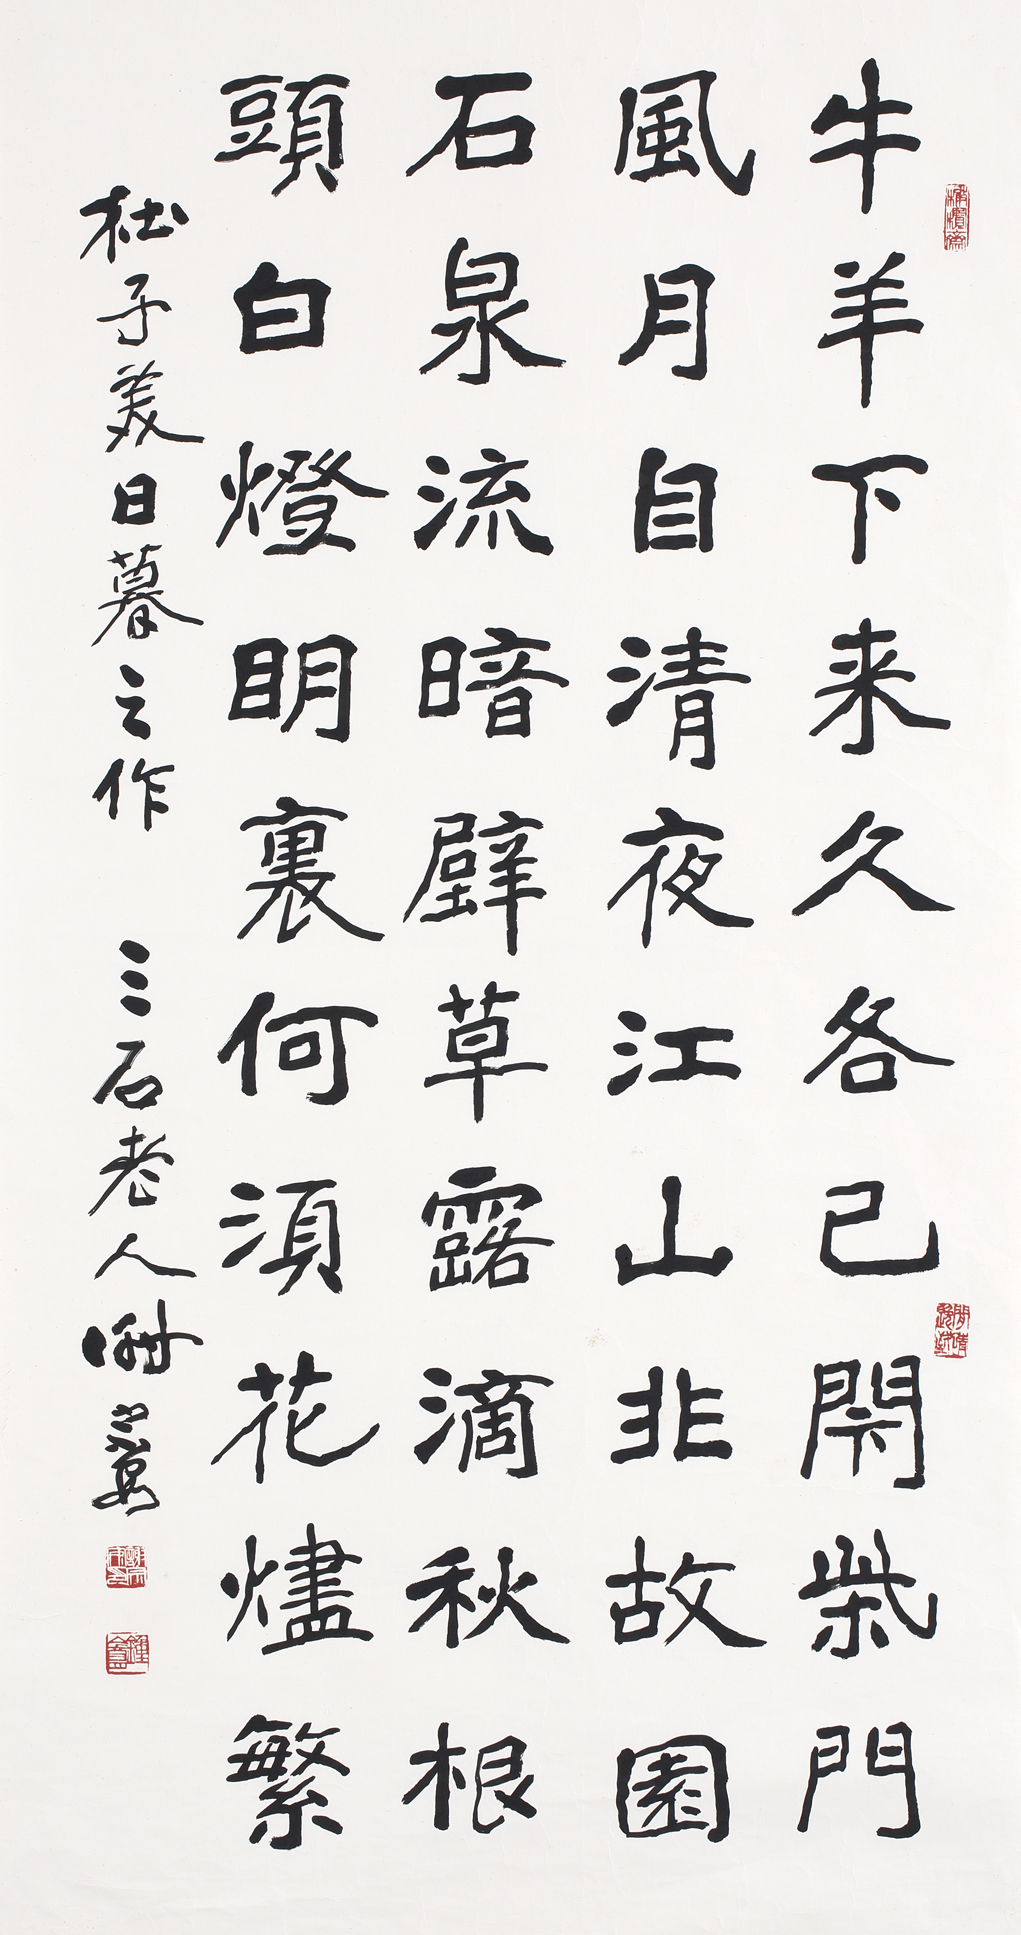 牛羊下来久各已閇柴門
風月自清夜江山非故園
石泉流暗壁草露滴秋根
頭白燈眀裏何湏花燼繁
杜子美日暮之作 三石老人謝宗安